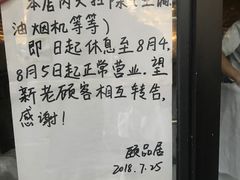 本店内大
油烟机等等)
即日起休息至8月4,
8月5日起正常营业.望
新老顾客相互转告,
感谢!
颐品居
2018.7.25